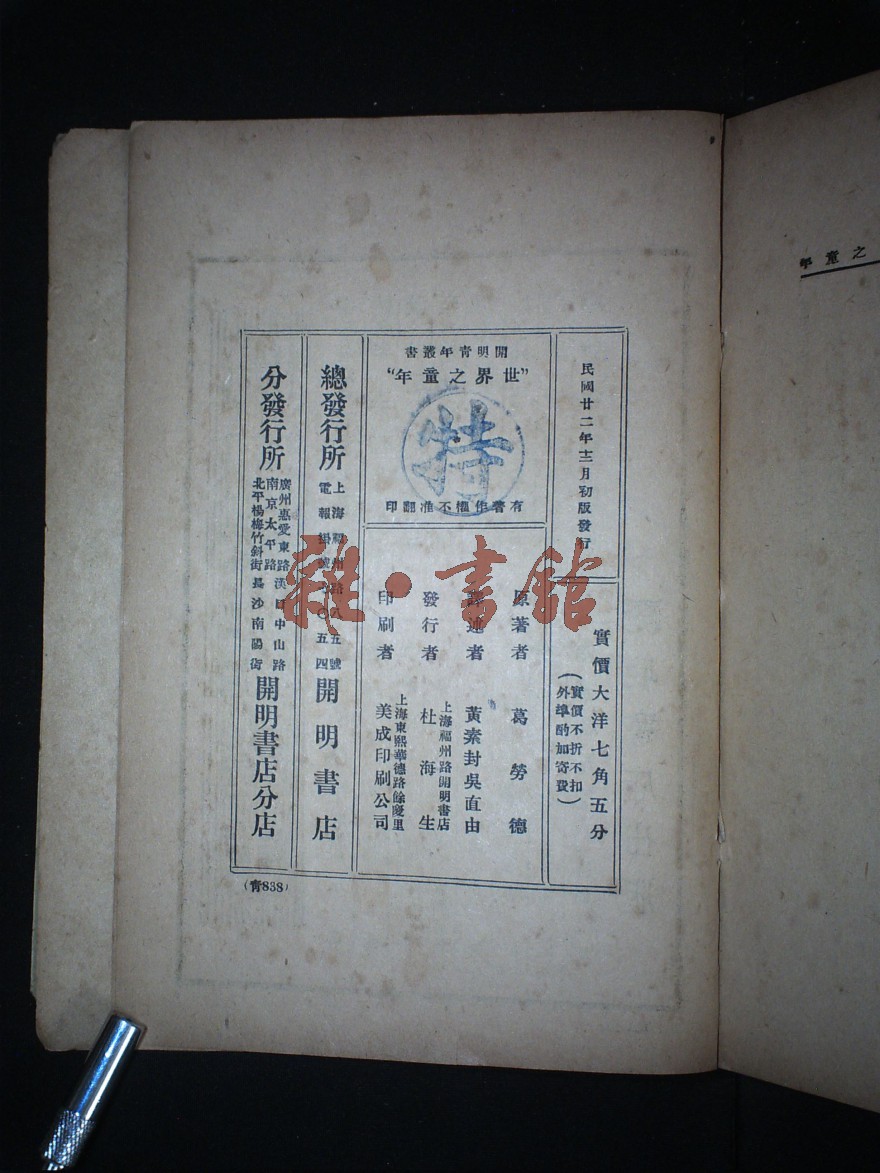 民國廿二年十二月初版發行
實價大洋七角五分
（實價不折不扣
外埠酌加寄費）
開明青年叢書
“世界之童年”
特
有著作權不准翻印
原著者 葛勞德
譯述者 黃素封吳直由
發行者 上海福州路開明書店
杜海生
印刷者 上海東熙華德路餘慶里
美成印刷公司
總發行所 上海福州路
電報掛號 五四 開明書店
分發行所 廣州惠愛東路 漢口中山路
南京太平路
北平楊梅竹斜街 長沙南陽街 開明書店分店
（青838）
之童年
雜·書館